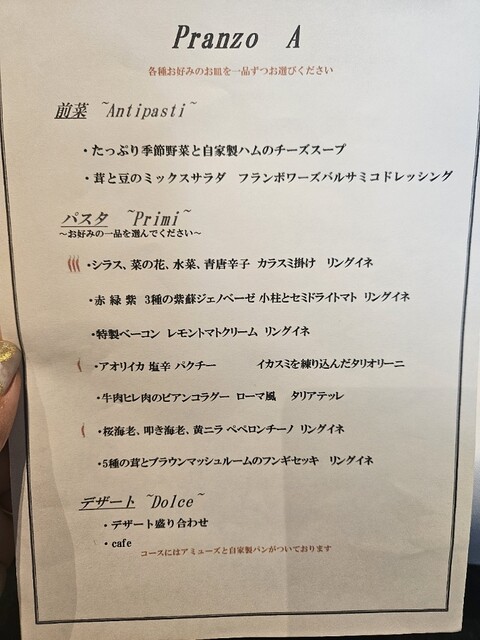 Pranzo A
各種お好みのお皿を一品ずつお選びください
前菜 ~Antipasti~
・たっぷり季節野菜と自家製ハムのチーズスープ
・茸と豆のミックスサラダ フランボワーズバルサミコドレッシング
パスタ ~Primi~
～お好みの一品を選んでください～
・シラス、菜の花、水菜、青唐辛子 カラスミ掛け リングイネ
・赤 緑 紫 3種の紫蘇ジェノベーゼ 小柱とセミドライトマト リングイネ
・特製ベーコン レモントマトクリーム リングイネ
・アオリイカ 塩辛 パクチー イカスミを練り込んだタリオリーニ
・牛肉ヒレ肉のビアンコラグー ローマ風 タリアテッレ
・桜海老、叩き海老、黄ニラ ペペロンチーノ リングイネ
・5種の茸とブラウンマッシュルームのフンギセッキ リングイネ
デザート ~Dolce~
・デザート盛り合わせ
・cafe
コースにはアミューズと自家製パンがついております